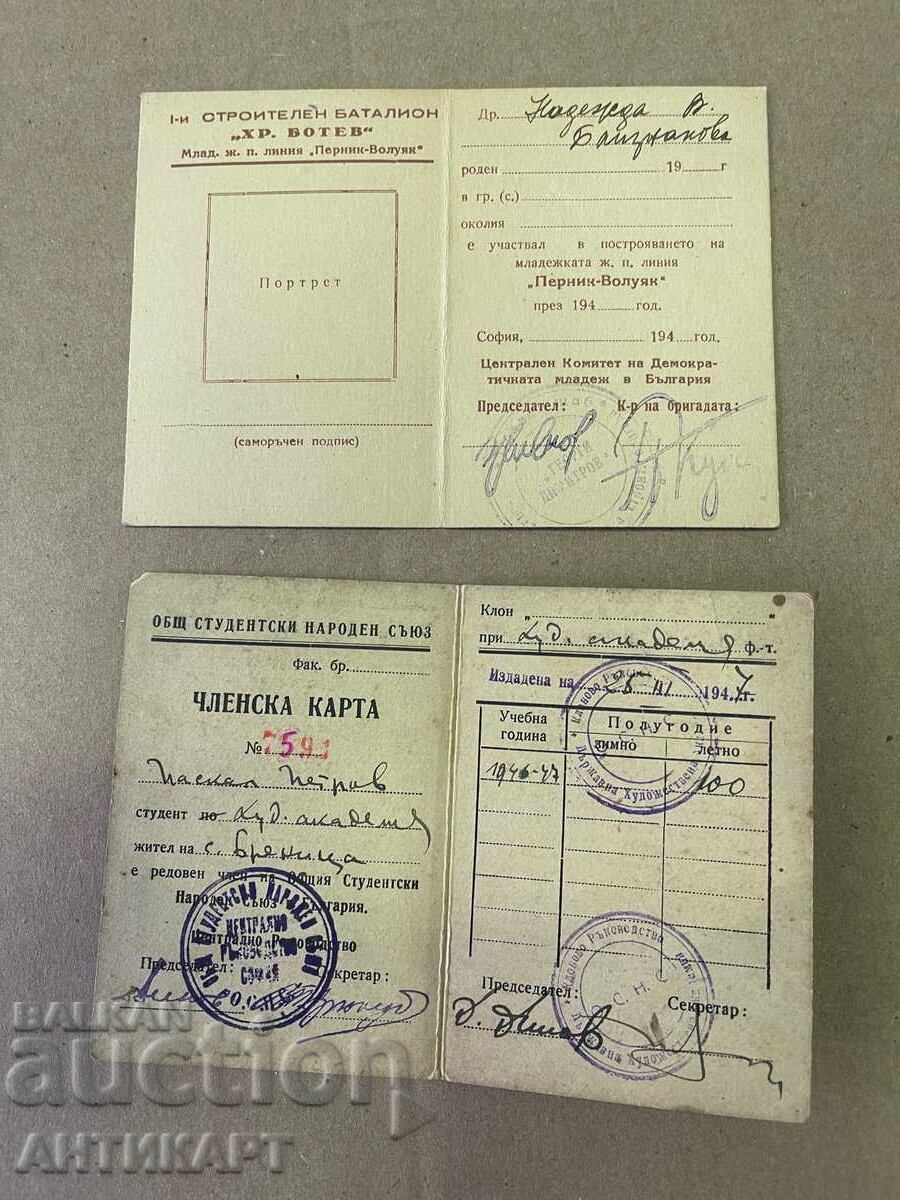 I-и СТРОИТЕЛЕН БАТАЛИОН
„ХР. БОТЕВ“
Млад. ж. п. линия „Перник-Волуяк“
Портрет
(саморъчен подпис)
Др. Надежда В.
роден 19 г
в гр. (с.)
околия
е участвал в построяването на
младежката ж. п. линия
„Перник-Волуяк“
през 194 год.
София, 194 год.
Централен Комитет на Демокра-
тичната младеж в България
Председател: К-р на бригадата:
ГЕОРГИ
ДИМИТРОВ
ОБЩ СТУДЕНТСКИ НАРОДЕН СЪЮЗ
Фак. бр.
ЧЛЕНСКА КАРТА
№ 7591
Паскал Петров
студент по Худ. академия
жител на с. Бреница
е редовен член на Общия Студентски
Народен Съюз България.
Централно Ръководство
Председател: Секретар:
ОБЩ СТУДЕНТСКИ НАРОДЕН СЪЮЗ
ЦЕНТРАЛНО
РЪКОВОДСТВО
СОФИЯ
Клон „ “
при Худ. академия ф.-т.
Издадена на 28 III 1947 г.
Учебна година
Полугодие
зимно летно
1946-47 100
Клоново Ръководство
Държавна Художествена
Председател: Секретар:
Клоново Ръководство
О.С.Н.С.
Държавна Художе
BALKAN
auction
АНТИКАРТ